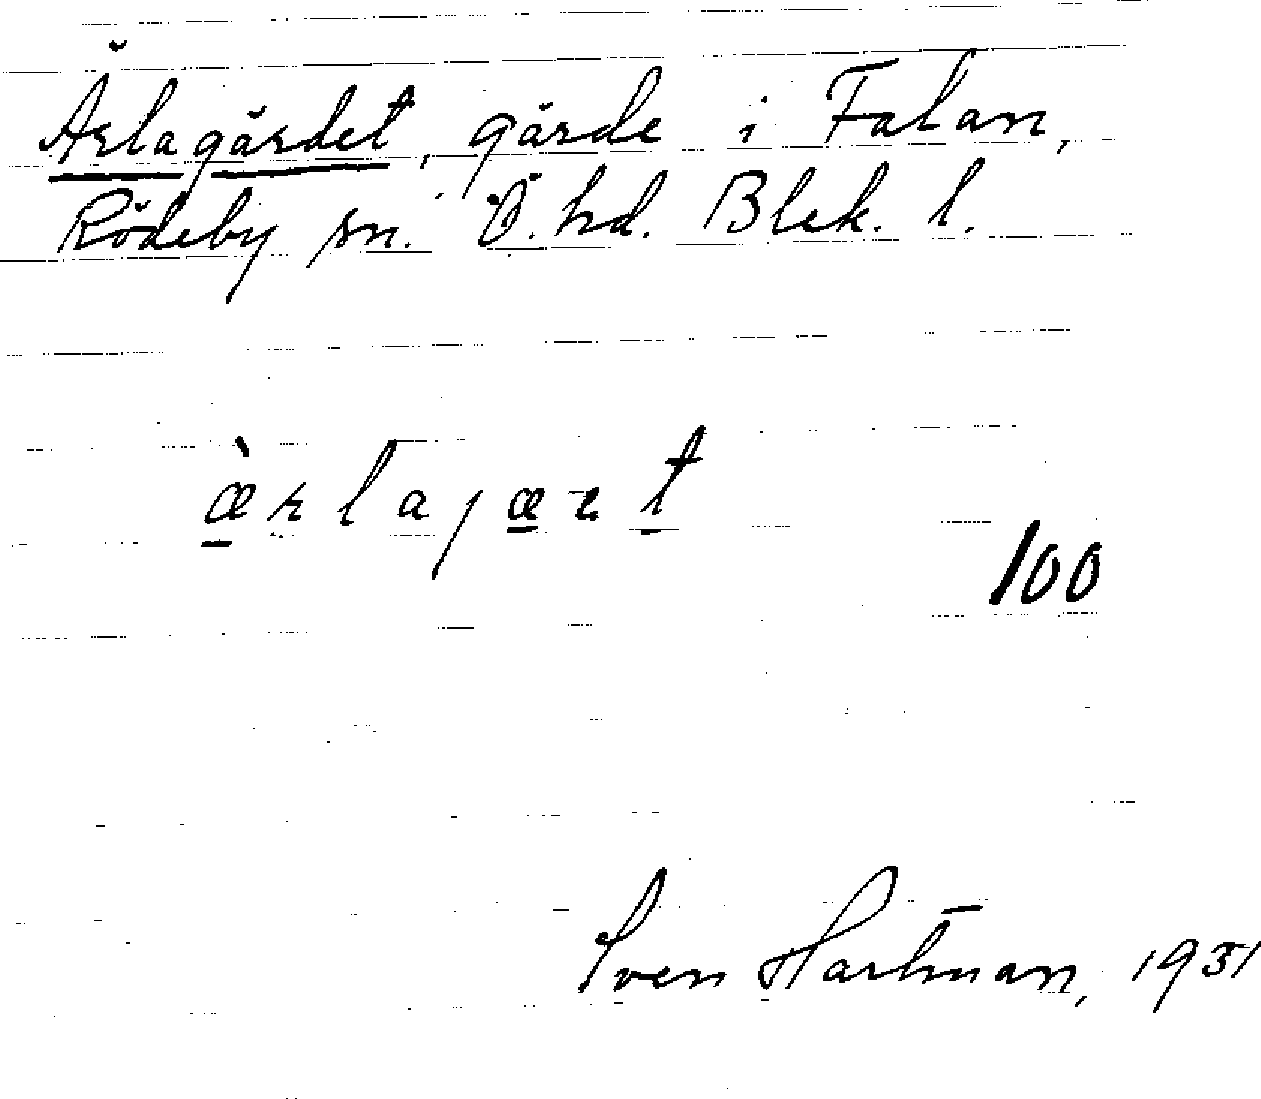 Ärlagärdet, gärde i Falan,
Rödeby sn. Ö. hd. Blek. l.
æ̀rlajæret
100
Sven Hartman, 1931